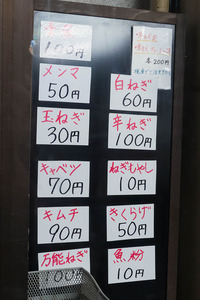 100円
各200円
メンマ
50円
白ねぎ
60円
玉ねぎ
30円
辛ねぎ
100円
キャベツ
70円
ねぎもやし
10円
キムチ
90円
きくらげ
50円
万能ねぎ
100円
魚粉
10円